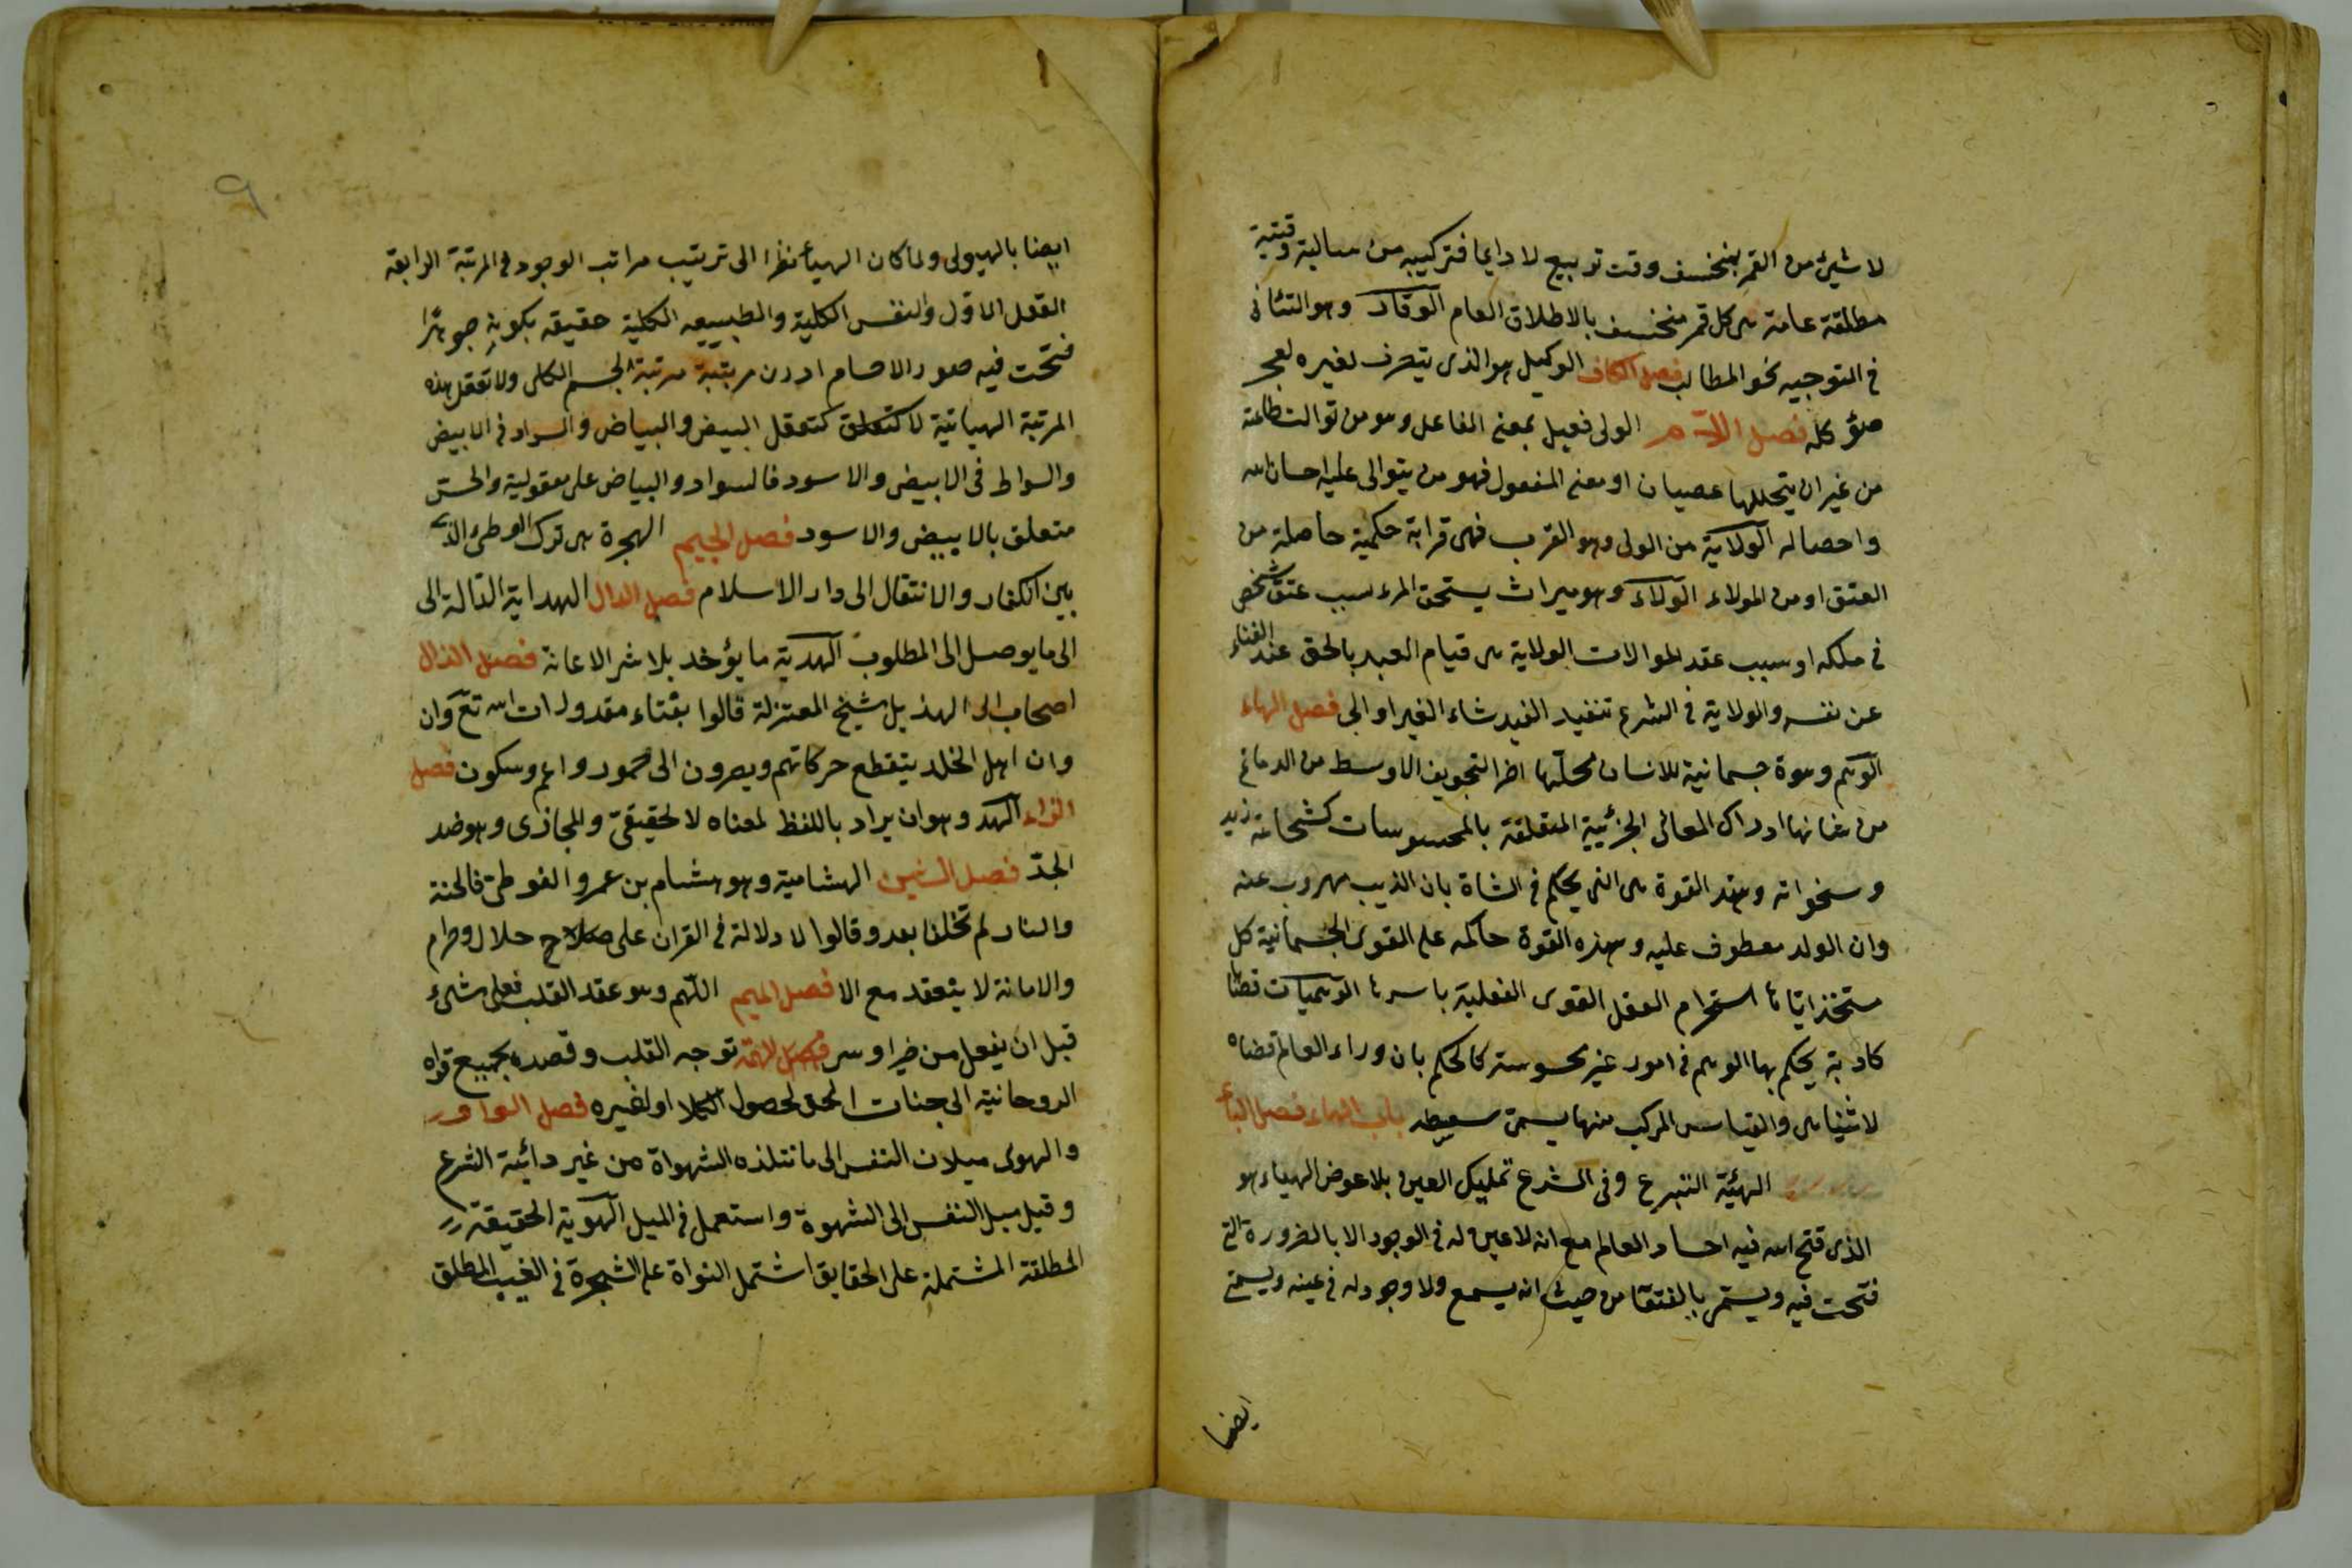 لا شيئ من القمر بمنخسف وقت تربيع لا دايما فتركيبه من سالبة وقتية
مطلقة عامة هى كل قمر منخسف بالاطلاق العام الوقار وهو التئانى
فى التوجيه نحو المطالب فصل الكاف الوكيل هو الذى يتصرف لغيره لعجز
مؤكله فصل اللام الولى فعيل بمعنى الفاعل وهو من توالت طاعته
من غير ان يتخللها عصيان او معنى المفعول فهو من يتوالى عليه احسان الله
واحصاله الولاية من الولى وهو القرب فهى قرابة حكمية حاصلة من
العتق او من المولاء الولاء وهو ميراث يستحق المرء بسبب عتق شخص
فى ملكه او سبب عقد الموالات الولاية هى قيام العبد بالحق عند الفناء
عن نفسه والولاية فى الشرع تنفيد الغير شاء الغير او ابى فصل الهاء
الوهم وهوة جسمانية للانسان محلّها اخر التجويف الاوسط من الدماغ
من شانها ادراك المعانى الجزئيية المتعلقة بالمحسوسات كشجاعة زيد
وسخواته وهذ القوة هى التى يحكم فى الشاة بان الذيب مهروب عنه
وان الولد معطوف عليه وهذه القوة حاكمه على القوى الجسمانية كل
مستخذ اياها استخرام العقل القوى العقلية باسرها الوهميات قضايا
كادبة يحكم بها الوهم فى امور غير محسوسة كالحكم بان وراء العالم قضاه
لا يتناهى والقياس المركب منها يسمى سفسطه باب الهاء فصل الباء
الهيئة التبرع وفى الشرع تمليك العين بلا عوض الهباء هو
الذى فتح الله فيه احساد العالم مع انه لا عين له فى الوجود الا بالضرورة التى
فتحت فيه ويسمى بالفتقا من حيث انه يسمع ولا وجود له فى عينه ويسمى
ايضا
٩
ايضا بالهيولى ولما كان الهباء نظرا الى تريتب مراتب الوجود فى المرتبة الرابعة
العقل الاول والنفس الكلية والطبيعيه الكلية حقيقه بكونه جوهرا
فتحت فيه صور الاحسام ادون مرتبة مرتبة الجسم الكلى ولا تعقل هذه
المرتبة الهبائية لا كتعلق كتعقل البيض والبياض والسواد فى الابيض
والسواط فى الابيض والاسود فالسواد والبياض على معقولية والحس
متعلق بالابيض والاسود فصل الجيم الهجرة هى ترك الوطن الذى
بين الكفار والانتقال الى دار الاسلام فصل الدال الهداية الدالة الى
الى ما يوصل الى المطلوب الهدية ما يؤخد بلا شر الاعانة فصل الذال
اصحاب ابى الهذيل شيخ المعتزلة قالوا بفناء مقدورات الله تع وان
وان اهل الخلد يتقطع حركاتهم ويصرون الى خمود دوام وسكون فصل
الزاء الهد وهو ان يراد باللفظ لمعناه لا لحقيقىّ والمجازى وهو ضد
الجدّ فصل الشين الهشامية وهو هشام بن عمرو الفوطى فالجنة
والنار لم تخلفا بعد وقالوا لا دلالة فى القران على حلال وحرام
والامانة لا ينعقد مع الا فصل الميم الهم وهو عقد القلب فعلى شئ
قبل ان يفعل من خير او سر الهمة توجه القلب وقصده بجميع قواه
الروحانية الى جنات الحق لحصول الكملا او لغيره فصل الواو
والهوى ميلان النفس الى ما نتلذه الشهواة من غير دائية الشرع
وقيل ميل النفس الى الشهوة واستعمل فى الميل الهوية الحقيقة
المطلقة المشتملة على الحقايق اشتمل النواة على الشجرة فى الغيب المطلق